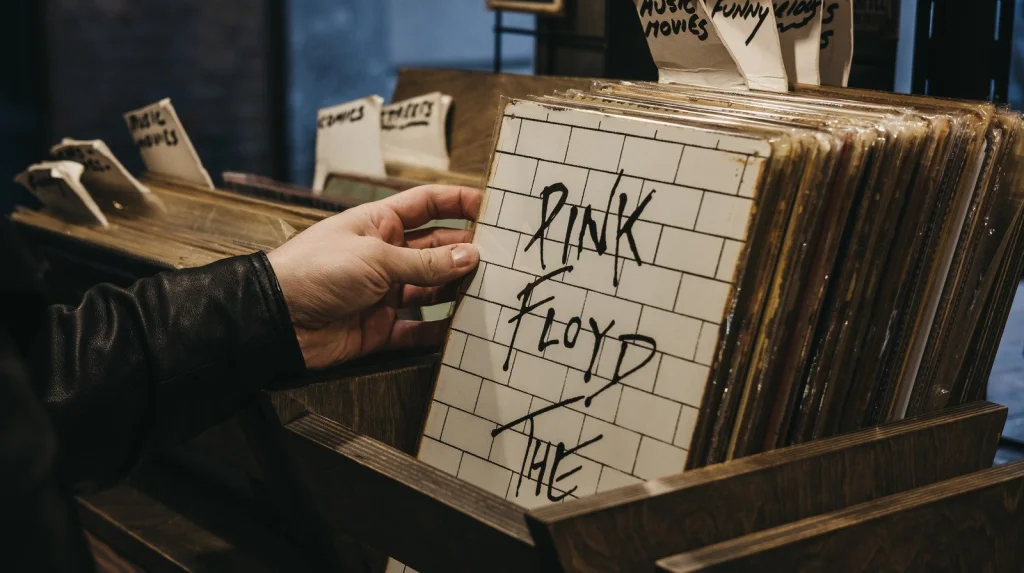 MUSIC
MOVIES
FUNNY
MUSIC
MOVIES
COMICS
PINK
FLOYD
THE